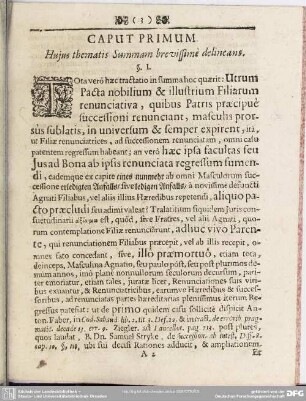 (1)
CAPUT PRIMUM
Hujus thematis Summam brevissimè delineans.
§. I.
TOta verò hæc tractatio in summa hoc quærit: Utrum
Pacta nobilium & illustrium Filiarum
renunciativa, quibus Patris præcipuè
successioni renunciant, masculis pror-
sus sublatis, in universum & semper expirent, ut
Filiæ renunciatrices, ad successionem renunciatam, omni casu
patentem regressum habeant; an verò hæc ipsa facultas seu
Jus ad Bona ab ipsis renunciata regressum sumen-
di, eademque ex capite eines nunmehr ab omni Masculorum suc-
cessione erledigten Anfalls, sive ledigen Anfalls, à novissimè defuncti
Agnati Filiabus, vel aliis illius Hæredibus repetendi, aliquo pa-
cto præcludi seu adimi valeat? Tralatitium siquidem Juris con-
suetudinarii est, quòd, sive Fratres, vel alii Agnati, quo-
rum contemplatione Filiæ renunciârunt, adhuc vivo Paren-
te, qui renunciationem Filiabus præcepit, vel ab illis recepit,
omnes fato concedant, sive, illo præmortuo, etiam tota,
deinceps, Masculorum Agnatio, seu paulo pòst, seu post plurimos de-
mum annos, imò planè nonnullorum seculorum decursum, pari-
ter emoriatur, etiam tales, juratæ licet, Renunciationes suis vi-
ribus exuantur, & Renunciatricibus, earumve Hæredibus & succes-
soribus, ad renunciatas partes hæreditarias plenissimus iterum Re-
gressus patefiat: ut de primo quidem casu sollicitè dispicit An-
ton. Faber,
decade Ziegler. pag. post plures,
quos laudat, B. Dn. Samuel Stryke,
cap. 10. ubi sui decisi Rationes adducit, & ampliationem.
A 2
Et